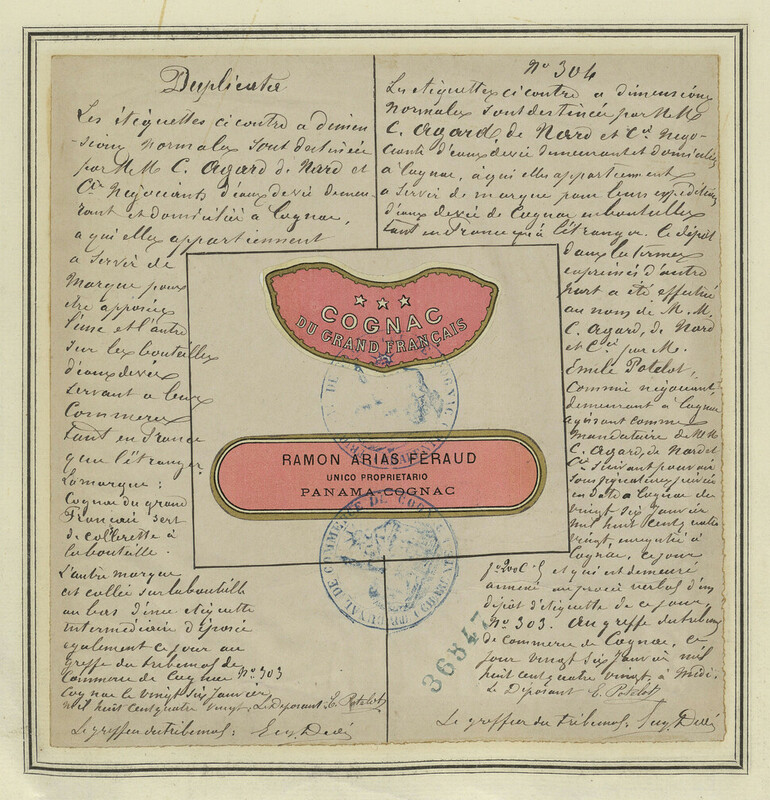 Duplicata
Les étiquettes ci contre a dimen
-sions normales sont destinées
par M M C. Agard de Nard et
Cie Négociants d'eaux de vie demeu-
rant et domiciliés à Cognac,
a qui elles appartiennent
a servir de
marque pour
être apposées
l'une et l'autre
sur les bouteilles
d'eaux de vie
servant a leur
Commerce
tant en France
que l'étranger
La marque :
Cognac du grand
Français sert
de collerette à
la bouteille.
L'autre marque
est collée sur la bouteille
au bas d'une étiquette
intermédiaire déposée
également ce jour au
greffe du tribunal de
Commerce de Cognac No 303
Cognac le vingt six janvier
mil huit cent quatre vingt. Le Déposant. E. Potelot
Le greffier du tribunal: Eug.
No 304
Les étiquettes ci contre a dimensions
normales sont destinées par M M
C. Agard de Nard et Cie Négo-
ciants d'eaux de vie demeurant et domiciliés
à Cognac, à qui elles appartiennent
a servir de marque pour leurs expéditions
d'eaux de vie de Cognac en bouteilles
tant en France qu'à l'étranger. Ce dépôt
dans les termes
exprimés d'autre
part a été effectué
au nom de M. M.
C. Agard, de Nard
et Cie par M.
Emile Potelot,
Commis négociant,
demeurant à Cognac
agissant comme
mandataire de M M
C. Agard, de Nard et
Cie suivant pouvoir
sous signatures privées
en date a Cognac du
vingt six janvier
mil huit cent quatre
vingt, enregistré à
Cognac, ce jour
et qui est demeuré
annexé au procès verbal d'un
dépôt d'étiquette de ce jour
No 303. Au greffe du tribunal
de Commerce de Cognac, ce
jour vingt six janvier mil
huit cent quatre vingt, à midi.
Le Déposant E. Potelot
Le greffier du tribunal: Eug.
COGNAC
DU GRAND FRANÇAIS
RAMON ARIAS FÉRAUD
UNICO PROPRIETARIO
PANAMA-COGNAC
TRIBUNAL DE COMMERCE DE COGNAC
36847